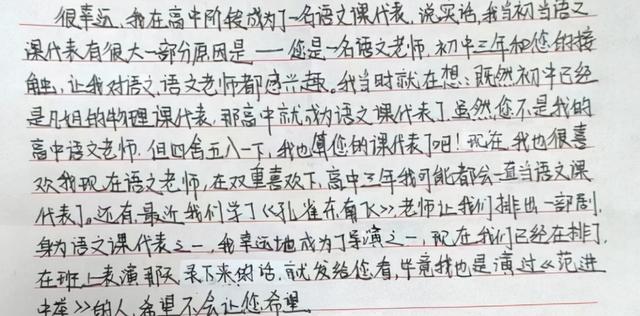 很幸运,我在高中阶段成为了一名语文课代表,说实话,我当初当语文
课代表有很大一部分原因是——您是一名语文老师,初中三年和您的接
触,让我对语文、语文老师都感兴趣。我当时就在想:既然初中已经
是凡姐的物理课代表,那高中就成为语文课代表了。虽然您不是我的
高中语文老师,但四舍五八一下,我也算您的课代表了吧!现在,我也很喜
欢我现在语文老师,在双重喜欢下,高中三年我可能都会一直当语文课
代表了。还有,最近我们学了《孔雀东南飞》,老师让我们排出一部剧,
身为语文课代表之一,我幸运地成为了导演之一,现在我们已经在排了,
在班上表演那次录下来的话,就发给您看,毕竟我也是演过《范进
中举》的人,希望不会让您希望。